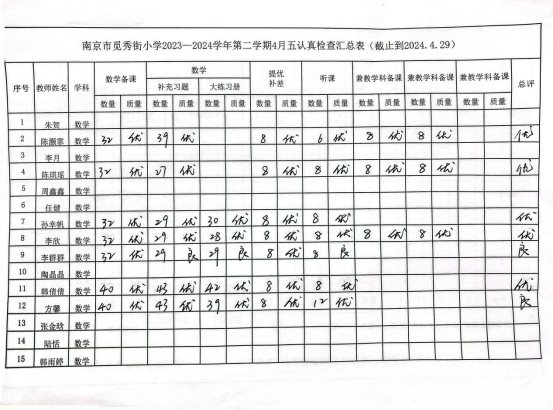 南京市觅秀街小学2023—2024学年第二学期4月五认真检查汇总表（截止到2024.4.29）
序号 教师姓名 学科 数学备课 数学 提优补差 听课 兼教学科备课 兼教学科备课 兼教学科备课 总评
补充习题 大练习册
数量 质量 数量 质量 数量 质量 数量 质量 数量 质量 数量 质量 数量 质量 数量 质量
1 朱贺 数学
2 陈灏霏 数学 32 优 39 优 8 优 6 优 8 优 8 优 优
3 李月 数学
4 陈琪瑶 数学 32 优 27 优 8 优 8 优 8 优 8 优 优
5 周鑫鑫 数学
6 任健 数学
7 孙幸帆 数学 32 优 29 优 30 优 8 优 8 优 优
8 李欣 数学 32 优 29 优 28 优 8 优 8 优 8 优 8 优 优
9 李群群 数学 32 优 29 良 29 良 8 优 8 良 良
10 陶晶晶 数学
11 韩倩倩 数学 40 优 43 优 42 优 8 优 8 优 优
12 方馨 数学 40 优 43 优 39 优 8 优 12 优 良
13 张金晗 数学
14 陆恬 数学
15 韩雨婷 数学